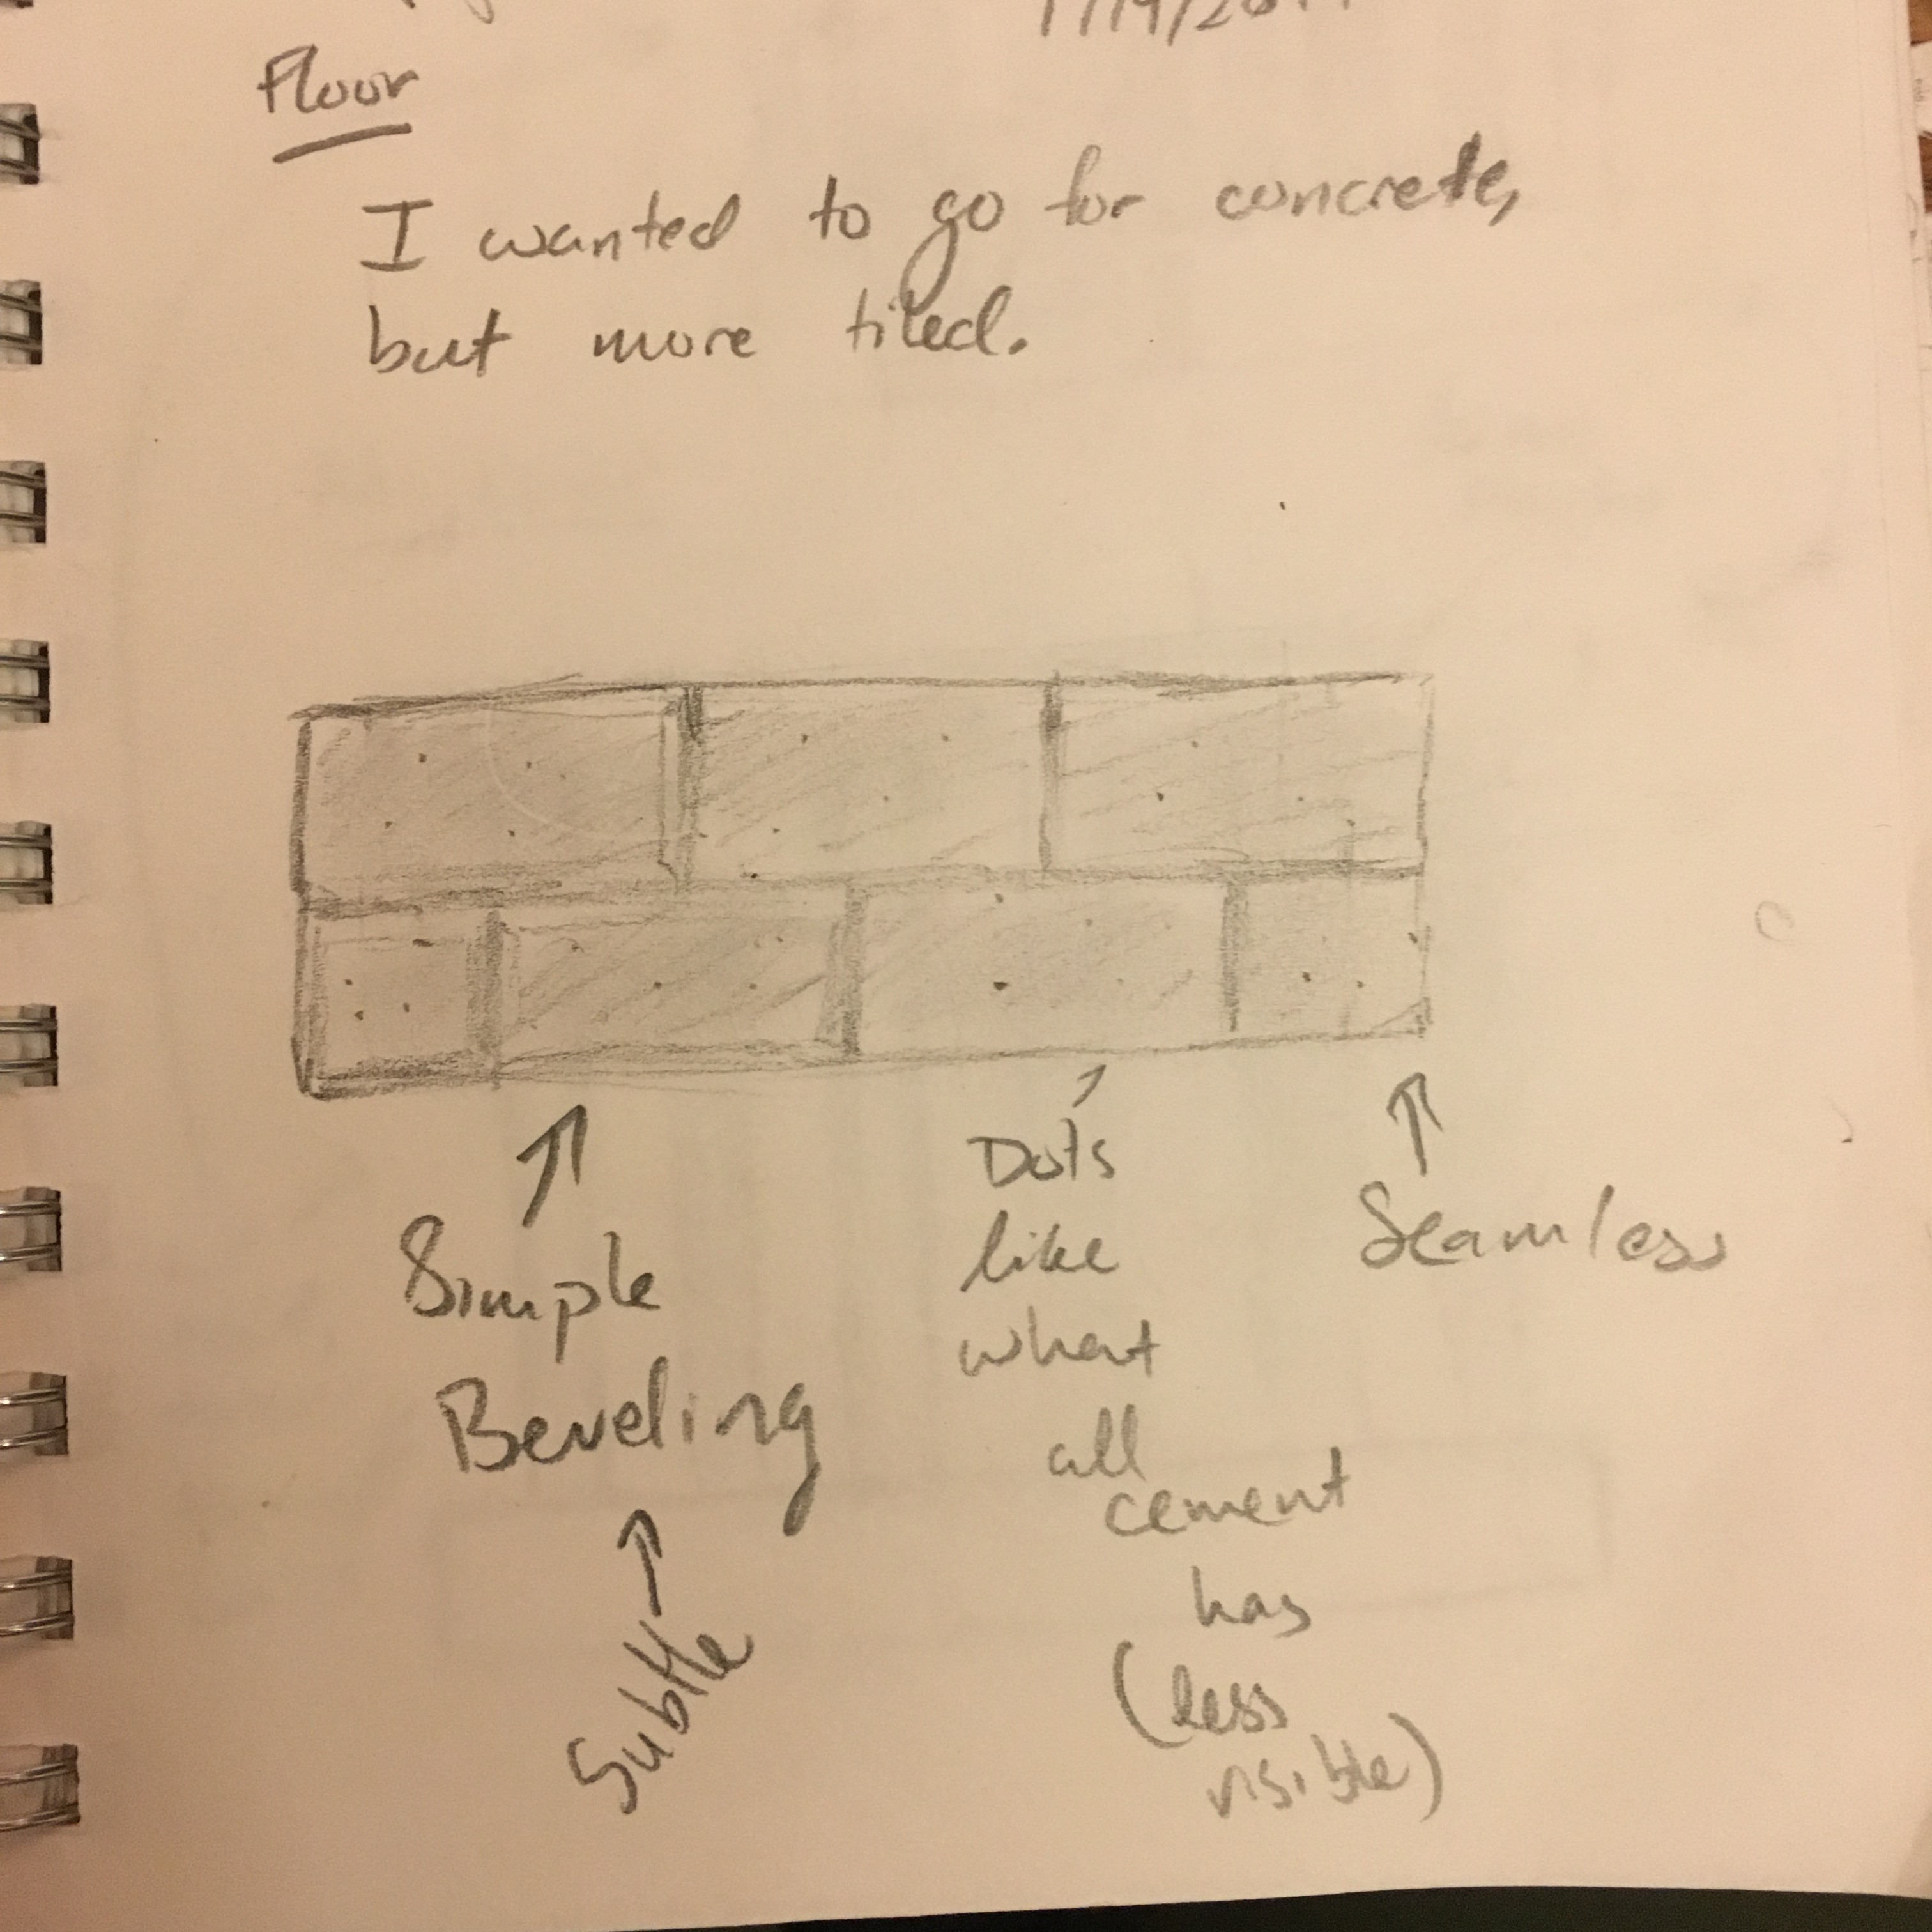 Floor
I wanted to go for concrete,
but more tiled.
Simple
Beveling
Subtle
Dots
like
what
all
cement
has
(less
visible)
Seamless